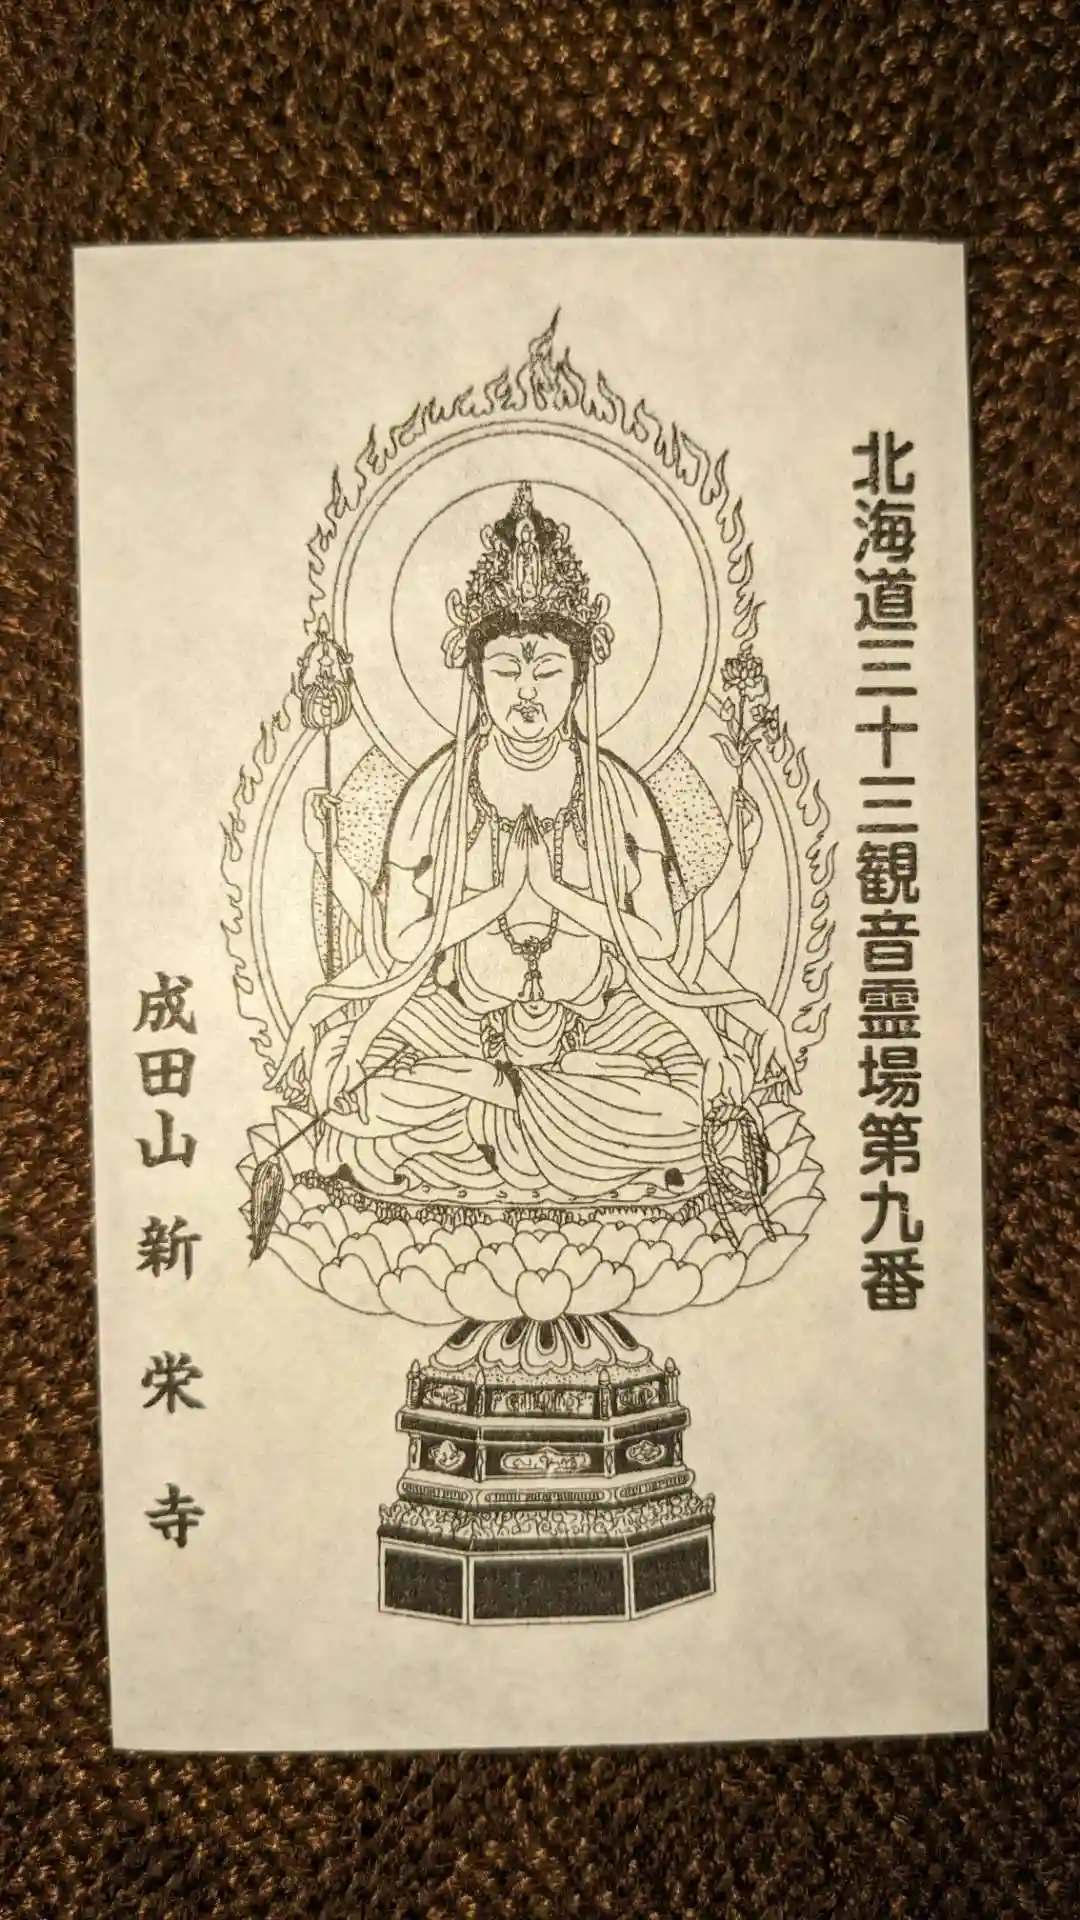 北海道三十三観音霊場第九番
成田山新栄寺